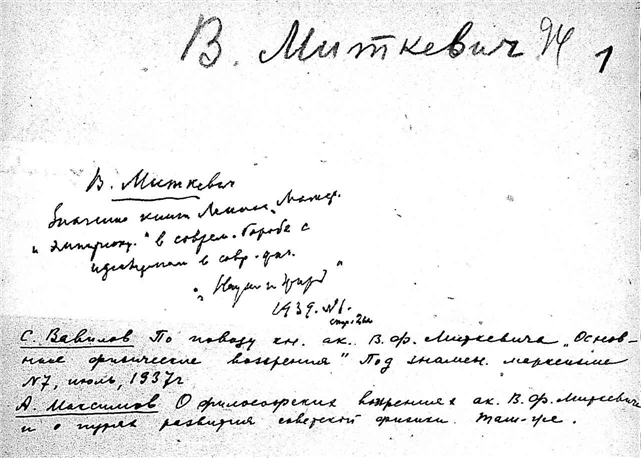 В. Миткевич 94 1
В. Миткевич
Значение книги Ленина „Матер.
и эмпириокр." в соврем. борьбе с
идеализмом в совр. физ.
„Наука и жизнь"
1939. №1.
стр.
С. Вавилов По поводу кн. ак. В.Ф. Миткевича „Основ-
ные физические воззрения" Под знамен. марксизма
№7, июль, 1937г
А. Максимов О философских воззрениях ак. В.Ф. Миткевича
и о путях развития советской физики. Там-же.